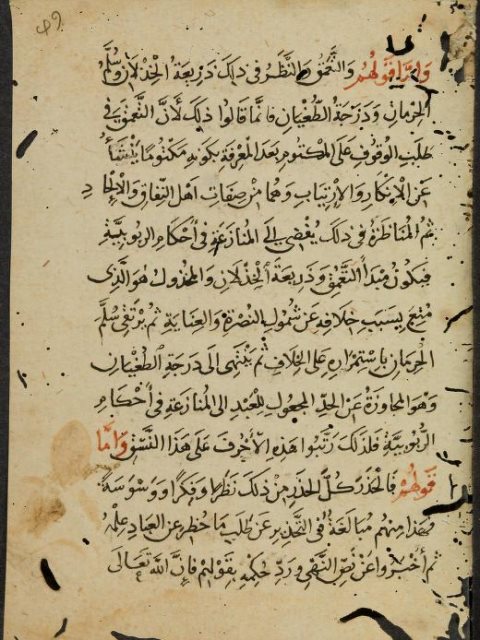 وأما قولهم والتعمق والنظر في ذلك ذريعة الخذلان وسلم
الحرمان ودرجة الطغيان فانما قالوا ذلك لأن التعمق في
طلب الوقوف على المكتوم بعد المعرفة بكونه مكتوما ينشأ
عن الإنكار والارتياب وهما من صفات اهل النفاق والإلحاد
ثم المناظرة في ذلك يفضي إلى المنازعة في أحكام الربوبية
فيكون مبدأ التعمق وذريعة الخذلان والمخذول هو الذي
منع بسبب خلافه عن شمول النصرة والعناية ثم يرتقي سلم
الحرمان باستمراره على الخلاف ثم ينتهي الى درجة الطغيان
وهو المجاوزة عن الحد المجعول للعبد الى المنازعة في أحكام
الربوبية فلذلك رتبوا هذه الأحرف على هذا النسق وأما
قولهم فالحذر كل الحذر من ذلك نظرا وفكرا ووسوسة
فهذا منهم مبالغة في التحذير عن طلب ما حظر عن العباد علمه
ثم أخبروا عن نص النهي ورد حكمه بقولهم فان الله تعالى